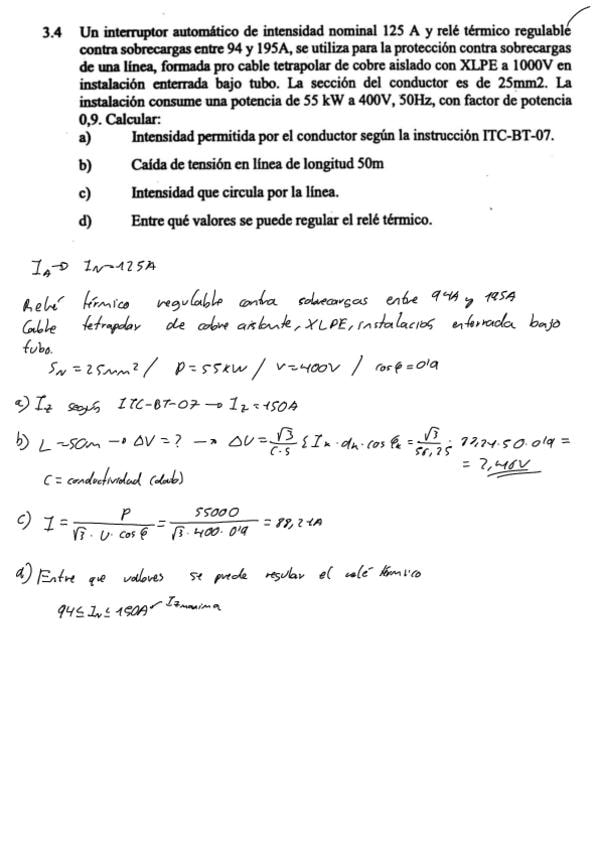 3.4 Un interruptor automático de intensidad nominal 125 A y relé térmico regulable
contra sobrecargas entre 94 y 195A, se utiliza para la protección contra sobrecargas
de una línea, formada pro cable tetrapolar de cobre aislado con XLPE a 1000V en
instalación enterrada bajo tubo. La sección del conductor es de 25mm2. La
instalación consume una potencia de 55 kW a 400V, 50Hz, con factor de potencia
0,9. Calcular:
a) Intensidad permitida por el conductor según la instrucción ITC-BT-07.
b) Caída de tensión en línea de longitud 50m
c) Intensidad que circula por la línea.
d) Entre qué valores se puede regular el relé térmico.
I_A → I_N = 125A
Relé térmico regulable contra sobrecargas entre 94A y 195A
Cable tetrapolar de cobre aislante, XLPE, instalación enterrada bajo
tubo.
S_N = 25mm² / P = 55kW / V = 400V / cos φ = 0'9
a) I_z según ITC-BT-07 → I_z = 150A
b) L = 50m → ΔV = ? → ΔU = √3/(C·S) Σ I_k · d_k · cos φ_k = √3/(56,25) · 88,21 · 50 · 0'9 =
= 2,46V
C = conductividad (dato)
c) I = P/(√3 · U · cos φ) = 55000/(√3 · 400 · 0'9) = 88,21A
d) Entre que valores se puede regular el relé térmico
94 ≤ I_N ≤ 150A I_z maxima